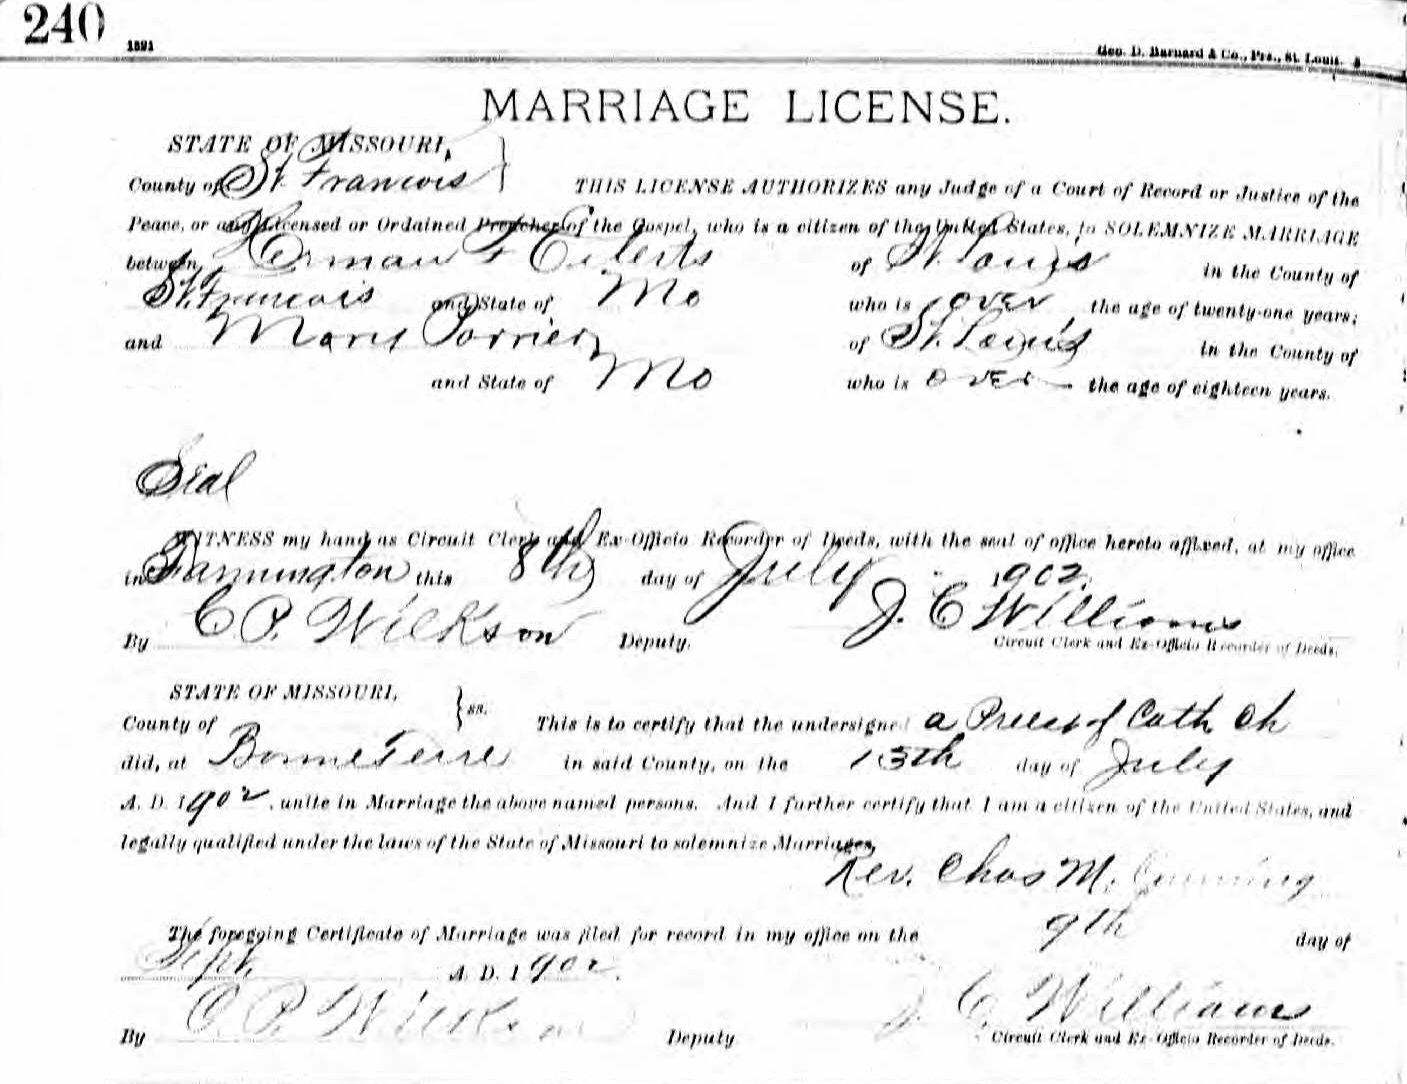 240
1891
Geo. D. Barnard & Co., Prs., St. Louis.
MARRIAGE LICENSE.
STATE OF MISSOURI,
County of St. Francois
THIS LICENSE AUTHORIZES any Judge of a Court of Record or Justice of the
Peace, or any Licensed or Ordained Preacher of the Gospel, who is a citizen of the United States, to SOLEMNIZE MARRIAGE
between Herman F Eilerts of St. Louis in the County of
St. Francois and State of Mo who is over the age of twenty-one years;
and Mary Porrier of St. Louis in the County of
and State of Mo who is over the age of eighteen years.
Seal
WITNESS my hand as Circuit Clerk and Ex-Officio Recorder of Deeds, with the seal of office hereto affixed, at my office
in Farmington this 8th day of July 1902.
By C. P. Wilkson Deputy. J. C Williams
Circuit Clerk and Ex-Officio Recorder of Deeds.
STATE OF MISSOURI,
ss.
County of This is to certify that the undersigned a Priest of Cath Ch
did, at Bonne Terre in said County, on the 13th day of July
A. D. 1902, unite in Marriage the above named persons. And I further certify that I am a citizen of the United States, and
legally qualified under the laws of the State of Missouri to solemnize Marriages,
Rev. Chas M.
The foregoing Certificate of Marriage was filed for record in my office on the 9th day of
Sept. A. D. 1902.
By C. P. Wilkson Deputy J. C. Williams
Circuit Clerk and Ex-Officio Recorder of Deeds.